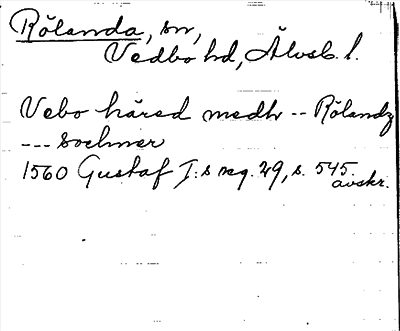 Rölanda, sn,
Vedbo hd, Älvsb. l.
Vebo häred medh -- Rölandz
--- sochner
1560 Gustaf I:s reg. 29, s. 545.
avskr.